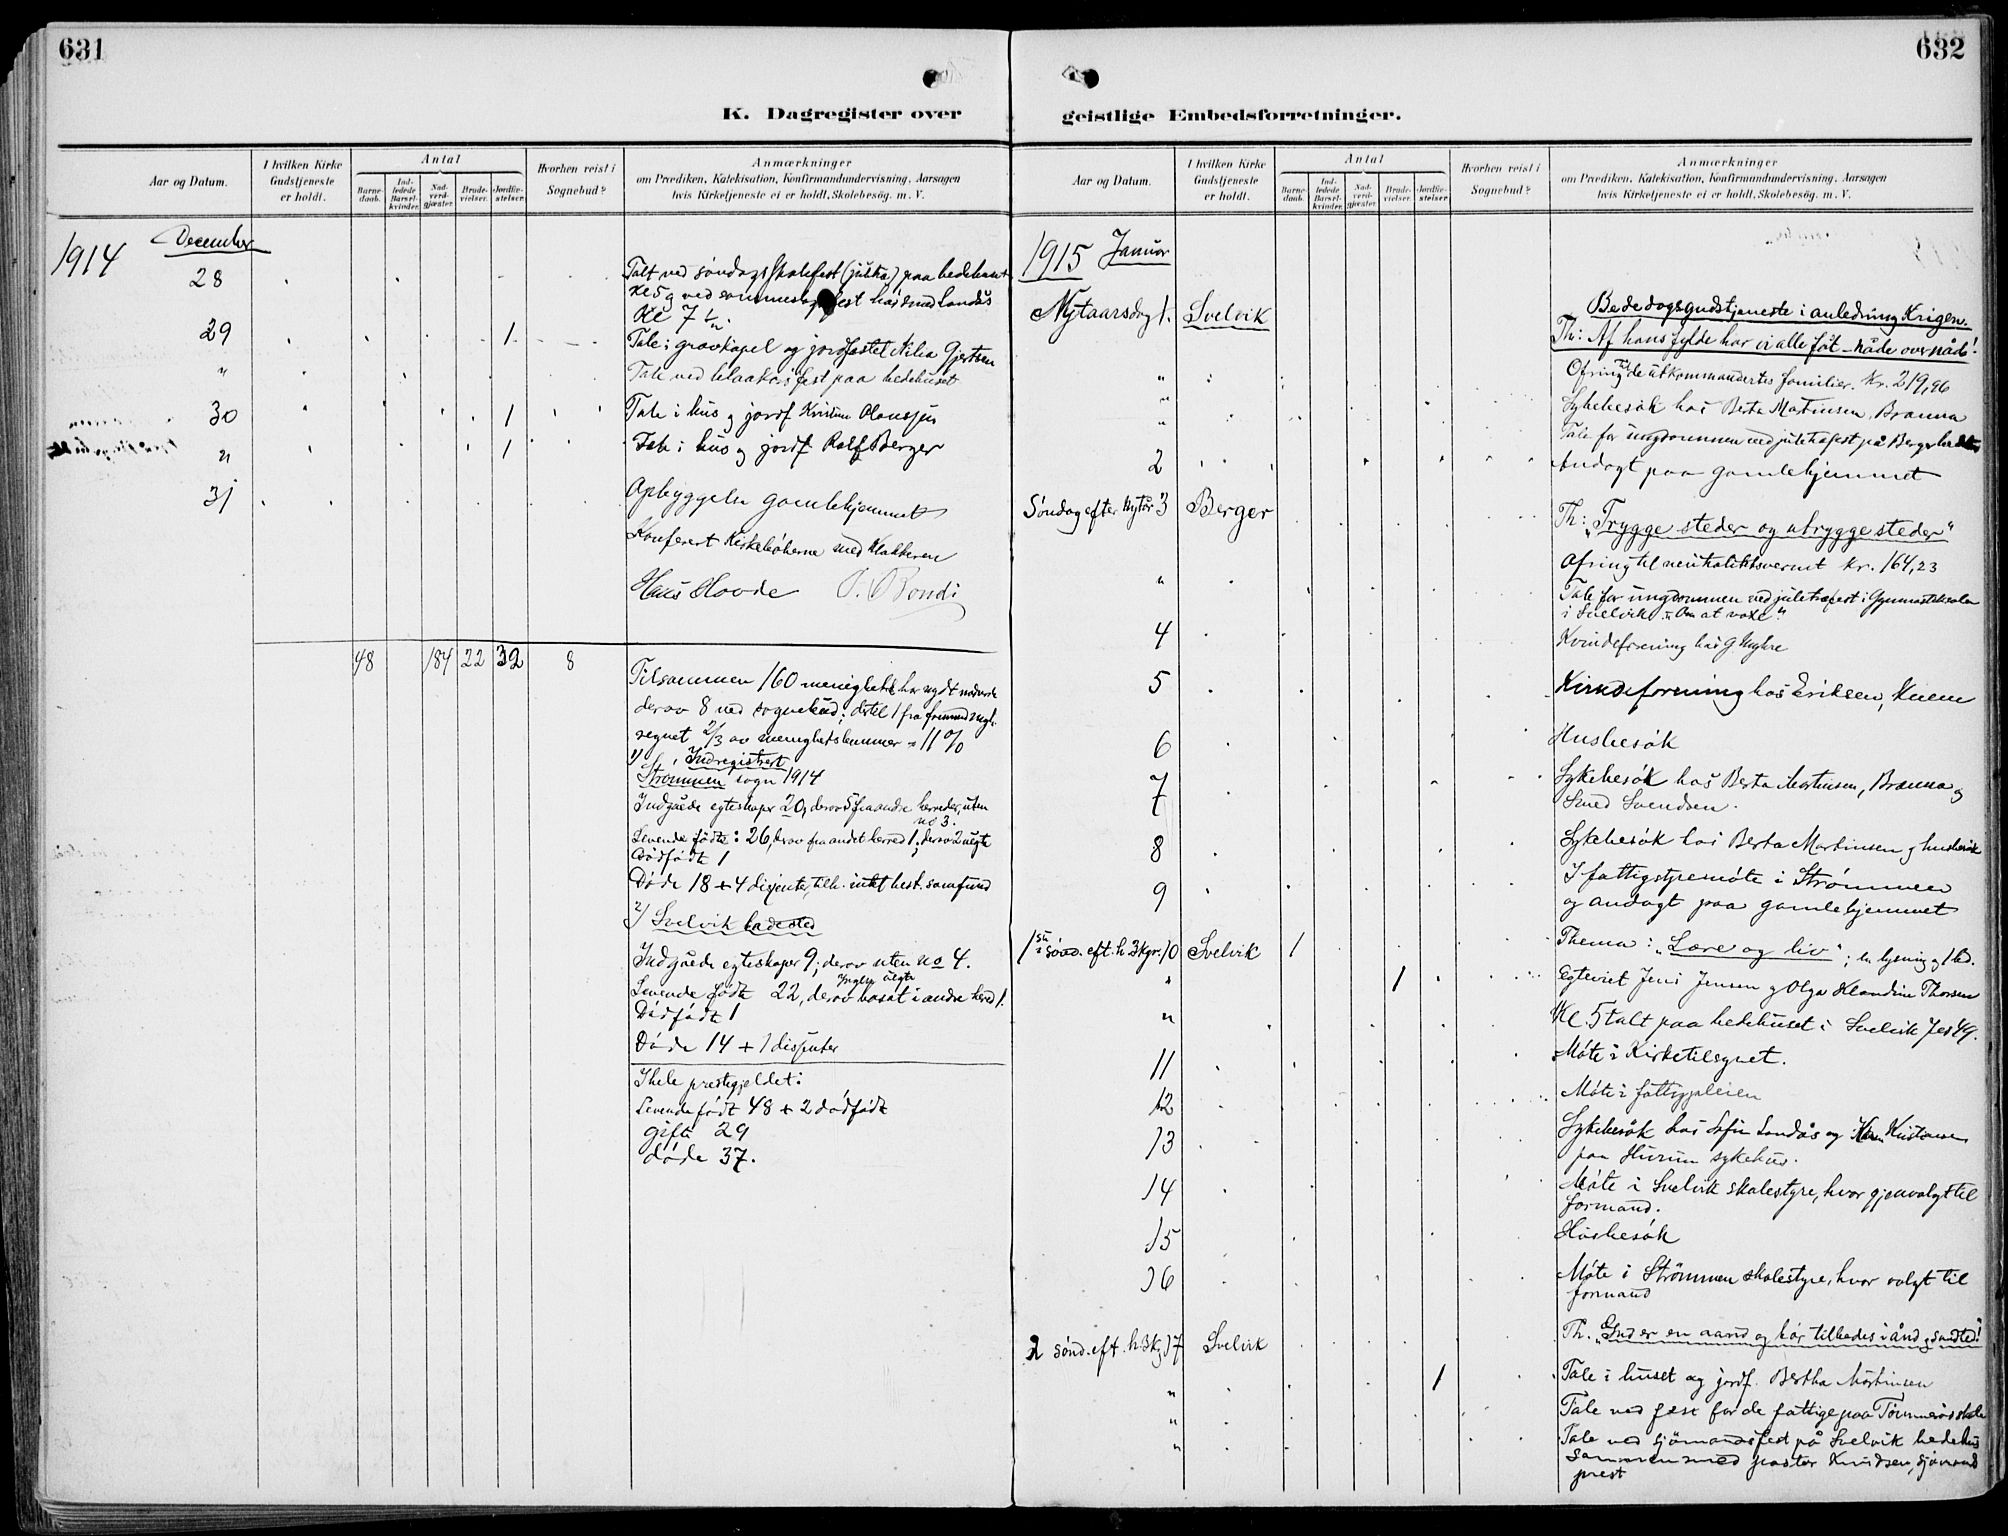 631
K. Dagregister over
Aar og Datum.
I hvilken Kirke Gudstjeneste er holdt.
Antal
Barnedaab.
Indledede Barselkvinder.
Nadverdgjæster.
Brudevielser.
Jordfæstelser.
Hvorhen reist i Sognebud?
Anmærkninger
om Prædiken, Katekisation, Konfirmandundervisning, Aarsagen
hvis Kirketjeneste ei er holdt, Skolebesøg. m. V.
1914 December
28 Talt ved søndagsskolefest (juska) paa bedehuset
kl 5 og ved
Kl 7 ½.
29 1 Tale i gravkapel og jordfæstet Nilia Gjertsen
" Tale ved blaakorsfest paa bedehuset
30 1 Tale i hus og jordf Kristine Olaussen
" 1 Tale i hus og jordf Rolf Berger
31 Opbyggelse gamlehjemmet
Konferert Kirkebøkerne med Klokkeren
Hans Hovde P. Bondi
48 184 22 32 8
Tilsammen 160 menighetsl har nydt nadverde
derav 8 ved sognebud; dertil 1 fra fremmed mgh.
regnet 2/3 av menighetslemmer = 11%
1) Indregistrert
Strømmen sogn 1914
Indgåede egteskaper 20, derav 5 fra andre herreder, uten
no 3.
Levende fødte: 26, derav fra andet herred 1; derav 2 uegte
Dødfødt 1
Døde 18 + 4 disjente, tilh. intet best. samfund
2) Svelvik ladested
Indgåede egteskaper 9; derav uten no 4.
Ingen uegte
Levende født 22, derav bosat i andre herred 1.
Dødfødt 1
Døde 14 + 1 disjenter
I hele prestegjeldet:
Levende født 48 + 2 dødfødt
gifte 29
døde 37.
632
geistlige Embedsforretninger.
Aar og Datum.
I hvilken Kirke Gudstjeneste er holdt.
Antal
Barnedaab.
Indledede Barselkvinder.
Nadverdgjæster.
Brudevielser.
Jordfæstelser.
Hvorhen reist i Sognebud?
Anmærkninger
om Prædiken, Katekisation, Konfirmandundervisning, Aarsagen
hvis Kirketjeneste ei er holdt, Skolebesøg. m. V.
1915 Januar
Nytaarsdag 1. Svelvik Bededagsgudstjeneste i anledning Krigen.
Th: Af hans fylde har vi alle fåt – nåde over nåde!
" Ofring til de utkommandertes familier. Kr. 219,96
" Sykebesøk hos Berta Martinsen, Brenna
" Tale for ungdommen ved juletrefest på Berger bedehus
2 Andagt paa gamlehjemmet
Søndag efter Nytår 3 Berger Th: "Trygge steder og utrygge steder"
Ofring til neitralitetsvernet kr. 164,23
" Tale for ungdommen ved juletræfest i Gymnastiksalen
i Svelvik: "Om at voxe"
4 Kvindeforening hos G. Myhre
5 Kvindeforening hos Eriksen, Knem
6 Husbesøk
7 Sykebesøk hos Berta Martinsen, Brenna og
Smed Svendsen.
8 Sykebesøk hos Berta Martinsen og husbesøk
9 I fattigstyremøte i Strømmen
og andagt paa gamlehjemmet
1ste sønd. eft. h 3 kgr. 10 Svelvik 1 Thema: "Lære og liv"; en lysning og 1 bd.
" 1 Egteviet Jens Jensen og Olga Klandine Thorsen
" Kl. 5 talt paa bedehuset i Svelvik Jes 49.
11 Møte i Kirketilsynet.
12 Møte i fattigpleien
13 Sykebesøk hos Sofie Landås og Karen Kristiansen
paa Hurum sykehus.
14 Møte i Svelvik skolestyre, hvor gjenvalgt til
formand.
15 Husbesøk
16 Møte i Strømmen skolestyre, hvor valgt til
formand
2 sønd. eft. h 3 kg 17 Svelvik Th. "Gud er en aand og bør tilbedes i ånd og sandhed!"
" 1 Tale i huset og jordf. Bertha Martinsen
" Tale ved fest for de fattige paa Tømmerås skole
" Tale ved sjømandsfest på Svelvik bedehus
sammen med pastor Knudsen, sjømands
prest